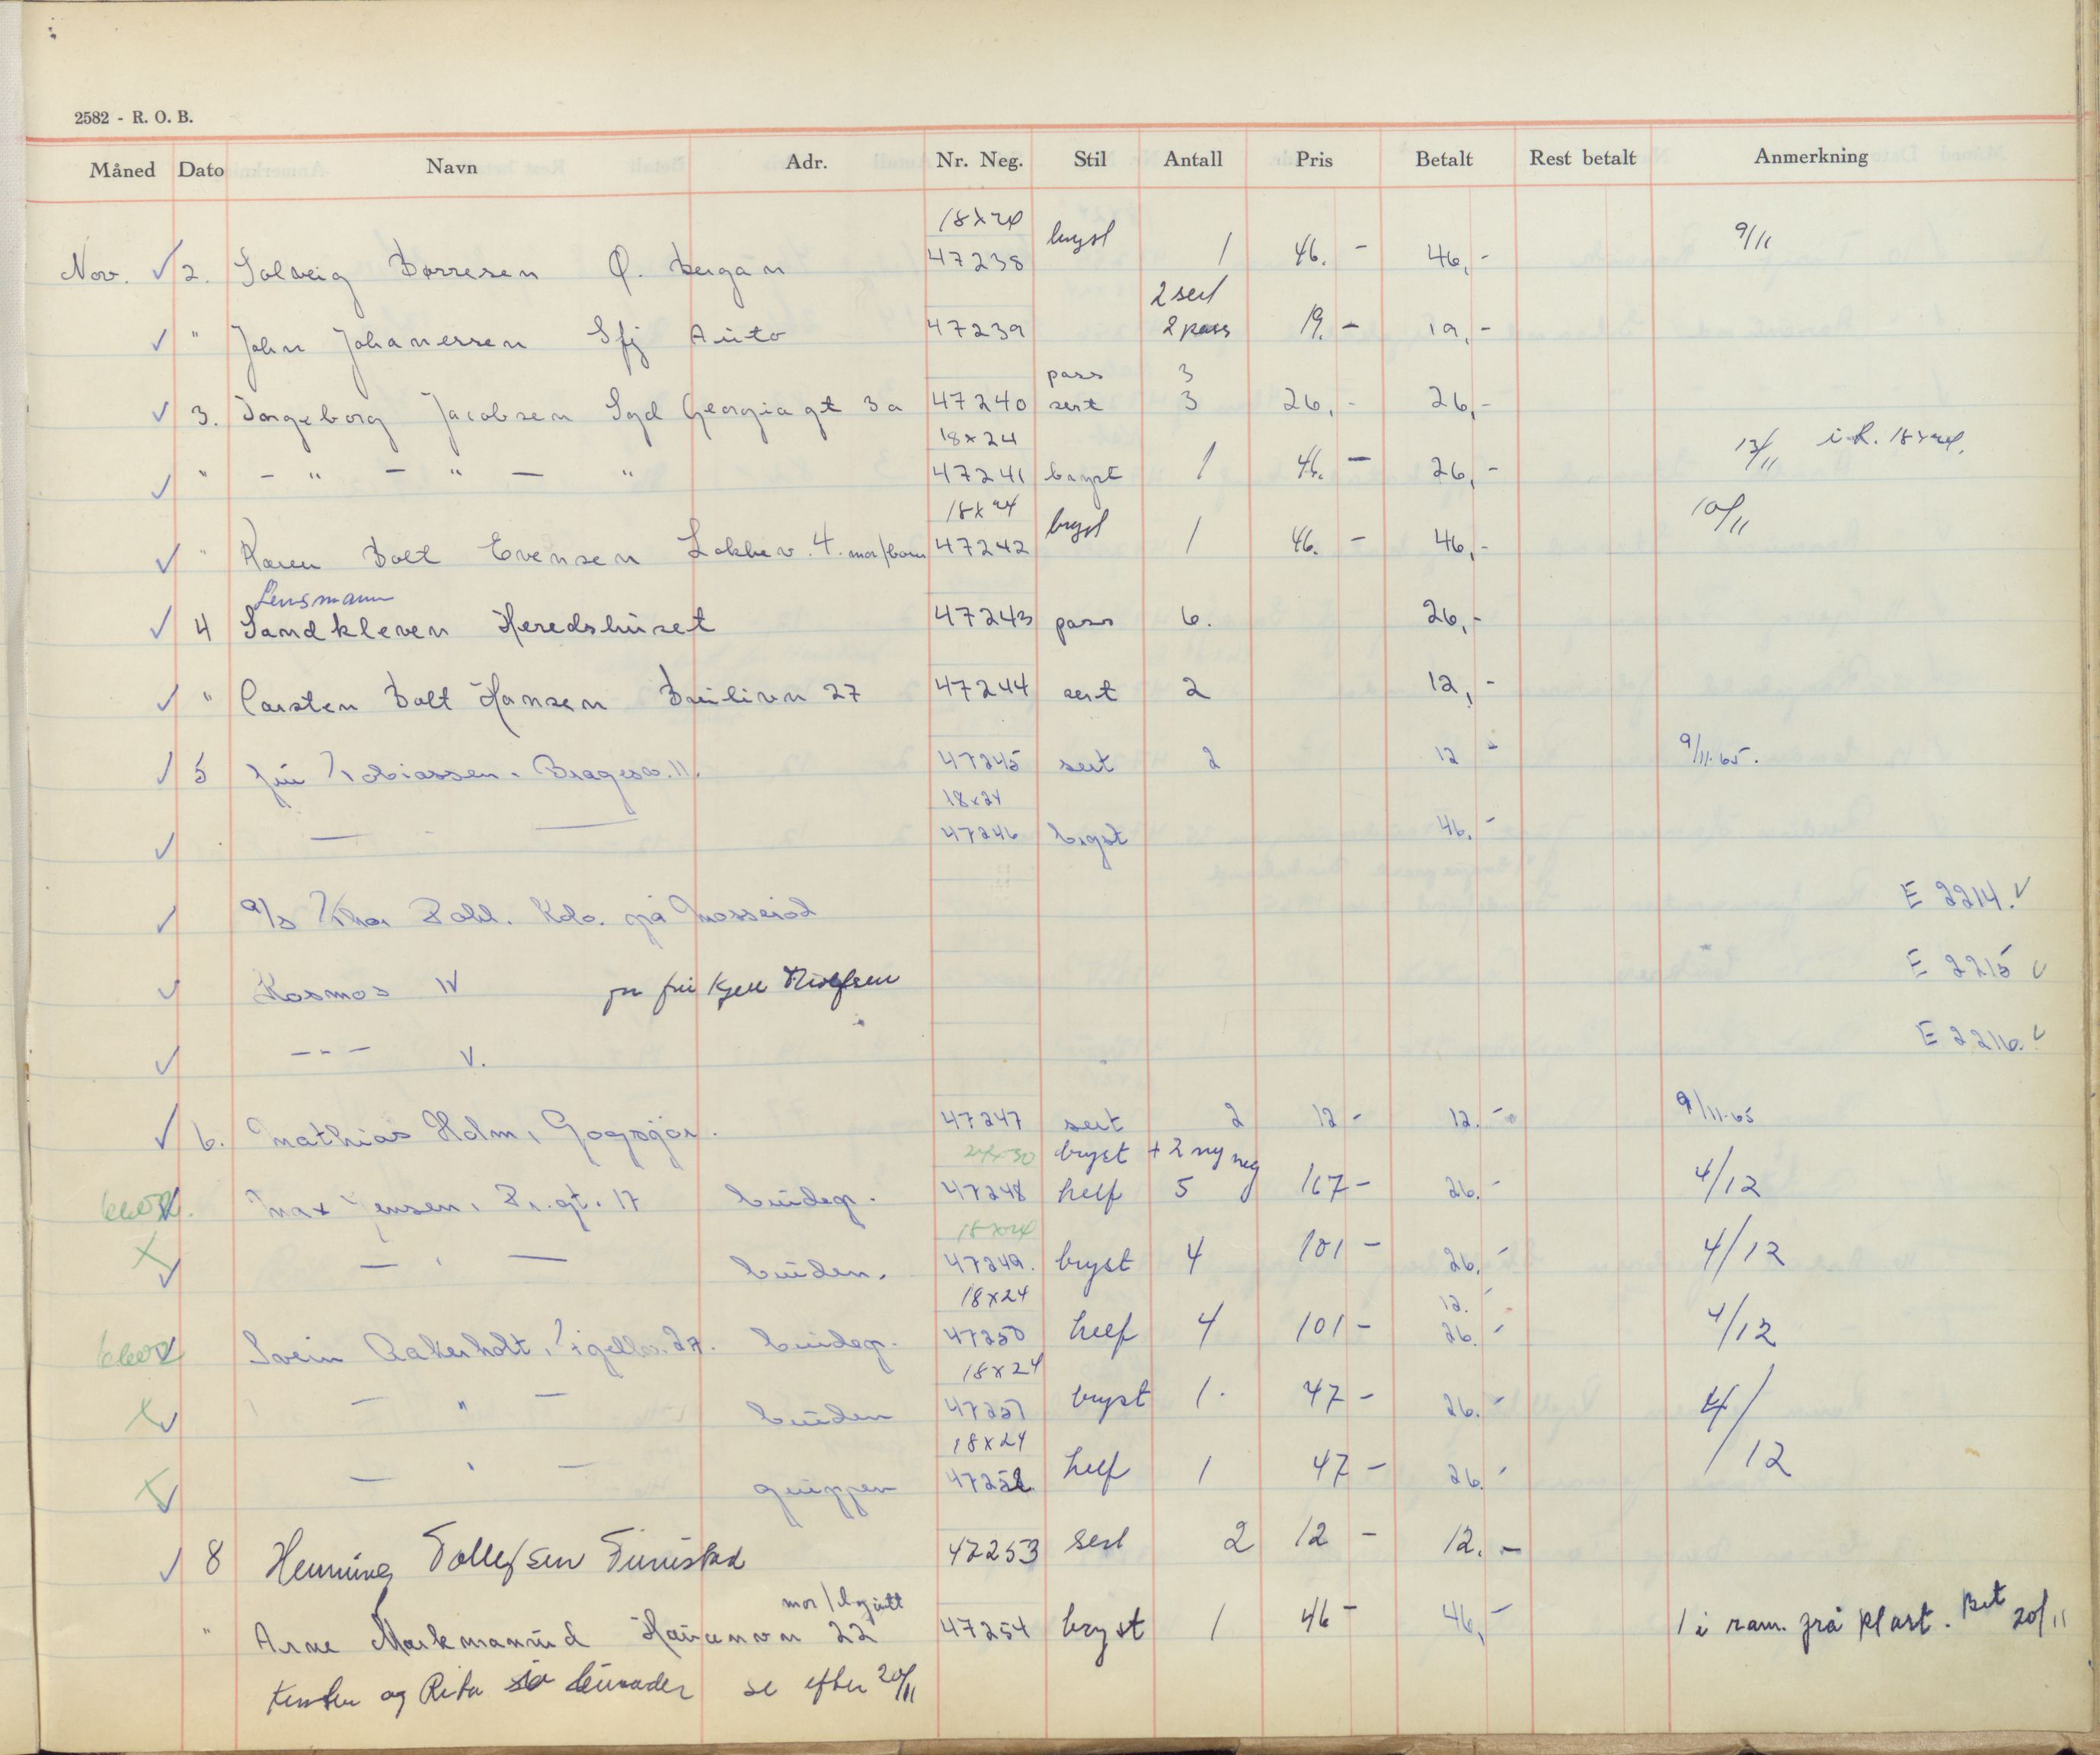 2582 - R. O. B.
Måned Dato Navn Adr. Nr. Neg. Stil Antall Pris Betalt Rest betalt Anmerkning
18x24
Nov. 2. Solveig Børresen Ø. Bergan 47238 bryst 1 46. - 46,- 9/11
2 sert
" John Johanessen Sfj Auto 47239 2 pass 19. - 19,-
pass 3
3. Ingeborg Jacobsen Sgd Georgiagt 3a 47240 sert 3 26,- 26,-
18x24
" - " - " - " 47241 bryst 1 46. - 26,- 12/11 i R. 18x24.
18x24
" Karen Bolt Evensen Løkkev. 4. mor/barn 47242 bryst 1 46. - 46,- 10/11
Lensmann
4 Sandkleven Heredshuset 47243 pass 6. 26,-
" Carsten Bolt Hansen 27 47244 sert 2 12,-
5 Tobiassen. Bragesv. 11. 47245 sert 2 12 - 9/11.65.
18x24
— " — 47246 bryst 46.-
a/s Thor Dahl. på E 2214.
Kosmos IV fru Kjell E 2215
- - - V. E 2216.
6. Mathias Holm, Gogsjør. 47247 sert 2 12 - 12.- 9/11.65
24x30 bryst + 2 ny neg
Max Jensen, Pr.gt. 17 brudep. 47248 helf 5 167- 26.- 4/12
18x24
— " — bruden. 47249. bryst 4 101 - 26.- 4/12
18x24 12.-
Svein Aakerholt, 27. brudep. 47250 helf 4 101 - 26.- 4/12
18x24
— " — bruden 47251 bryst 1. 47 - 26.- 4/12
18x24
— " — gruppen 47252 helf 1 47 - 26.-
8 Henning Tollefsen Furustad 47253 sert 2 12 - 12. -
mor/
" Arne Markmanrud Haucanvn 22 47254 bryst 1 46 - 46,- 1 i ram. grå Plast. Bet 20/11
og Rita se efter 20/11